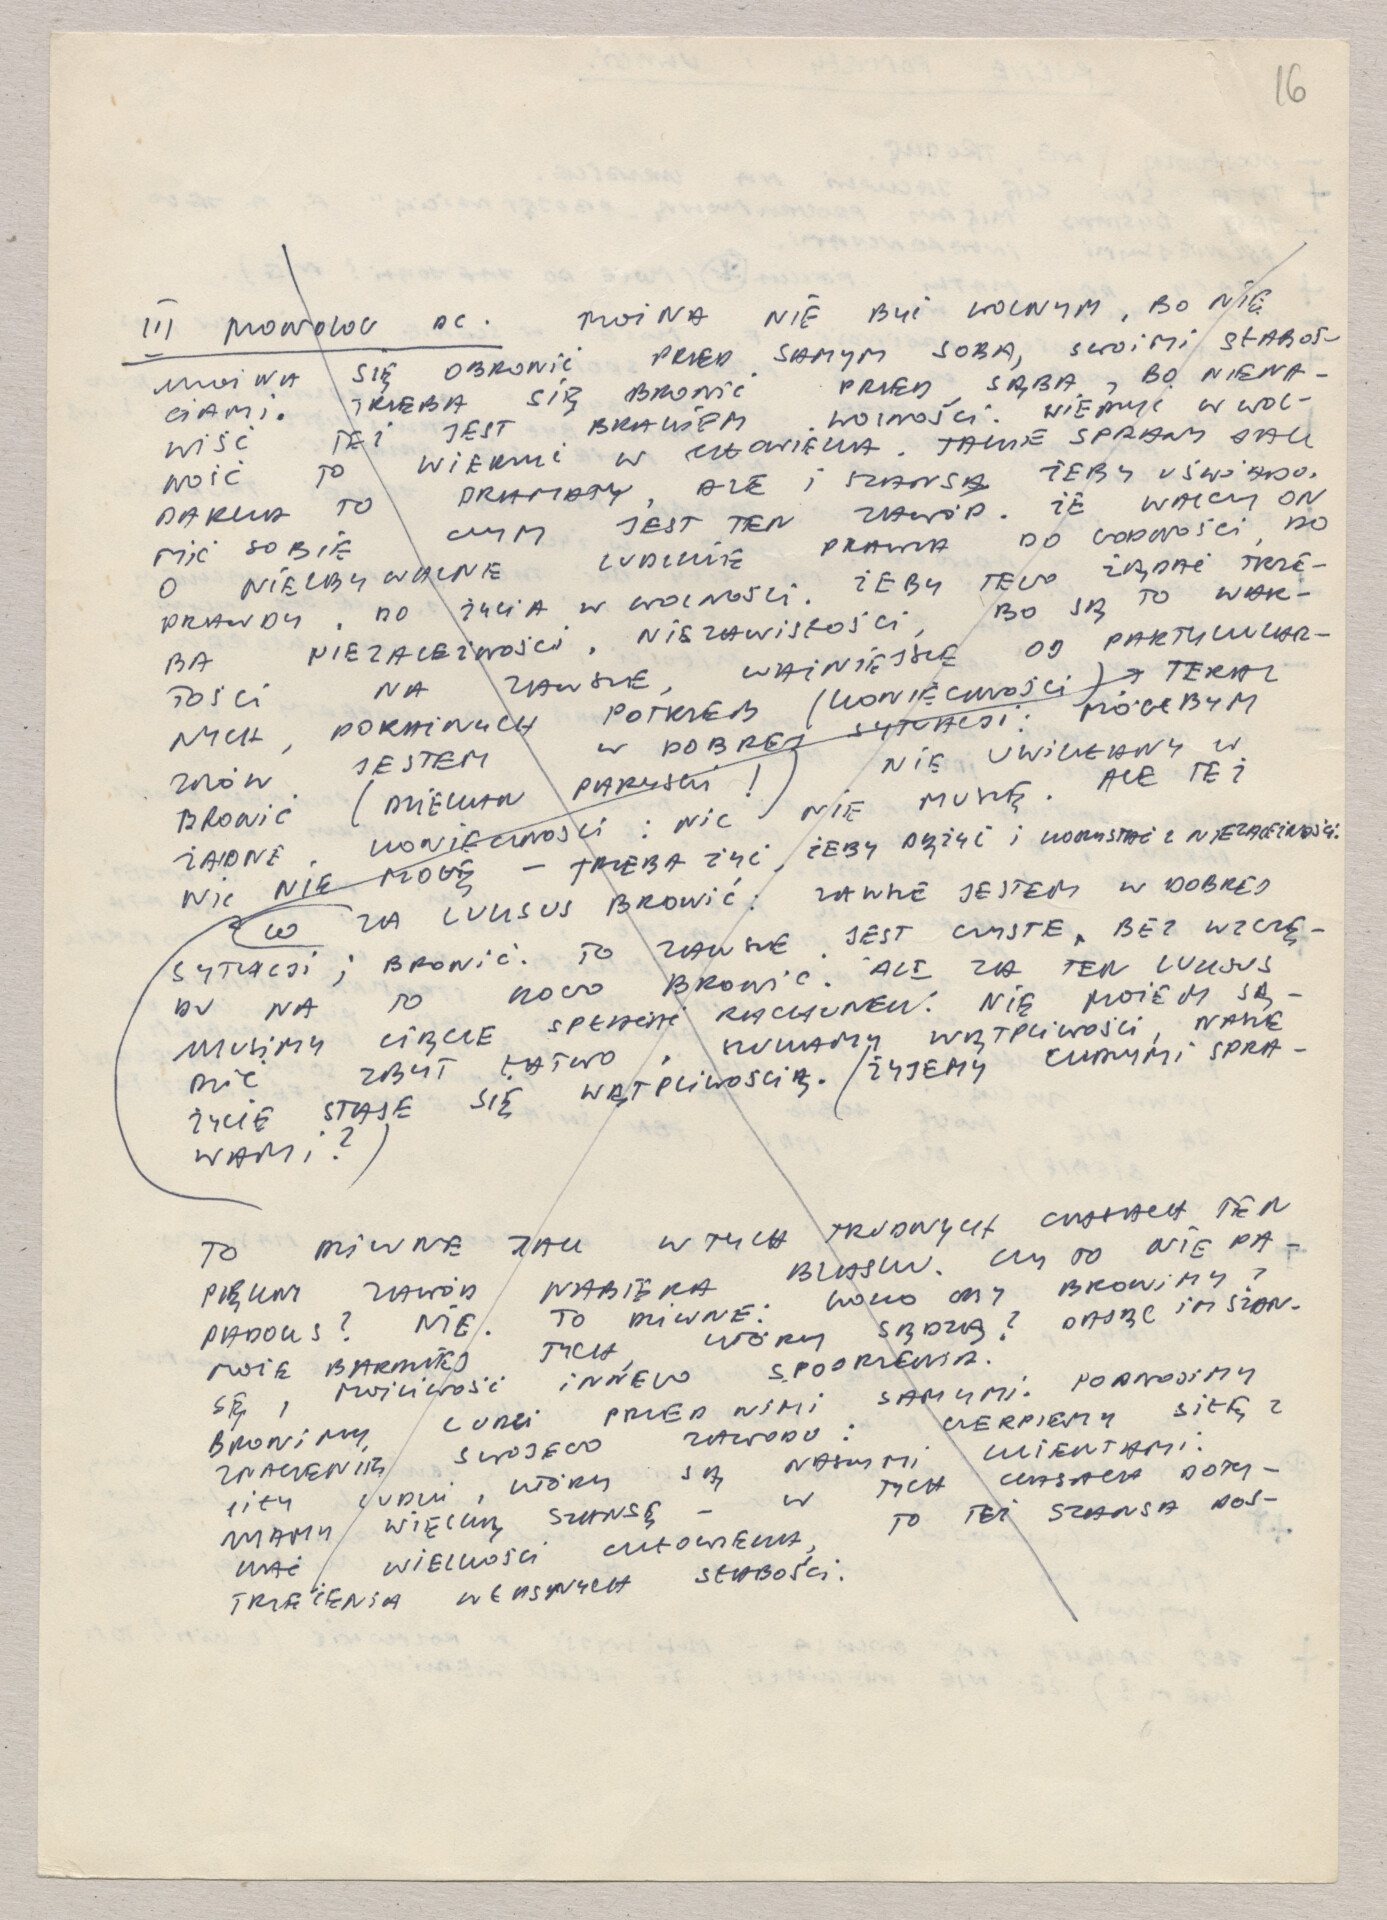 16
III MONOLOG AC. MOŻNA NIE BYĆ WOLNYM, BO NIE
MOŻNA SIĘ OBRONIĆ PRZED SAMYM SOBĄ, SWOIMI SŁABOŚ-
CIAMI. TRZEBA SIĘ BRONIĆ PRZED SOBĄ, BO NIENA-
WIŚĆ TEŻ JEST BRAKIEM WOLNOŚCI. WIERZYĆ W WOL-
NOŚĆ TO WIERZYĆ W CZŁOWIEKA. TAKIE SPRAWY JAK
DARKA TO DRAMATY, ALE I SZANSA ŻEBY UŚWIADO-
MIĆ SOBIE CZYM JEST TEN ZAWÓD. ŻE WALCZY ON
O NIEZBYWALNE LUDZKIE PRAWA DO GODNOŚCI, DO
PRAWDY, DO ŻYCIA W WOLNOŚCI. ŻEBY TEGO ŻĄDAĆ TRZE-
BA NIEZALEŻNOŚCI, NIEZAWISŁOŚCI, BO SĄ TO WAR-
TOŚCI NA ZAWSZE, WAŻNIEJSZE OD PARTYKULAR-
NYCH, DORAŹNYCH POTRZEB (KONIECZNOŚCI) → TERAZ
ZNÓW JESTEM W DOBREJ SYTUACJI: MÓGŁBYM
BRONIĆ (DZIEKAN PARYSKI!) NIE UWIKŁANY W
ŻADNE KONIECZNOŚCI: NIC NIE MUSZĘ. ALE TEŻ
NIC NIE MOGĘ – TRZEBA ŻYĆ, ŻEBY DĄŻYĆ I KORZYSTAĆ Z NIEZALEŻNOŚCI.
CO ZA LUKSUS BRONIĆ: ZAWSZE JESTEM W DOBREJ
SYTUACJI; BRONIĆ. TO ZAWSZE JEST CZYSTE, BEZ WZGLĘ-
DU NA TO KOGO BRONIĆ. ALE ZA TEN LUKSUS
MUSIMY CIĄGLE SPŁACAĆ RACHUNEK. NIE MOŻEM SĄ-
DZIĆ ZBYT ŁATWO, SZUKAMY WĄTPLIWOŚCI, NASZE
ŻYCIE STAJE SIĘ WĄTPLIWOŚCIĄ. (ŻYJEMY CUDZYMI SPRA-
WAMI?)
TO DZIWNE JAK W TYCH TRUDNYCH CZASACH TEN
PIĘKNY ZAWÓD NABIERA BLASKU. CZY TO NIE PA-
RADOKS? NIE. TO DZIWNE: KOGO MY BRONIMY?
MOŻE BARDZIEJ TYCH, KTÓRZY SĄDZĄ? DAJĄC IM SZAN-
SĘ, MOŻLIWOŚĆ INNEGO SPOJRZENIA.
BRONIMY LUDZI PRZED NIMI SAMYMI. PODNOSIMY
ZNACZENIE SWOJEGO ZAWODU: CZERPIEMY SIŁĘ Z
SIŁY LUDZI, KTÓRZY SĄ NASZYMI KLIENTAMI.
MAMY WIELKĄ SZANSĘ – W TYCH CZASACH DOTY-
KAĆ WIELKOŚCI CZŁOWIEKA, TO TEŻ SZANSA DOS-
TRZEŻENIA WŁASNYCH SŁABOŚCI.